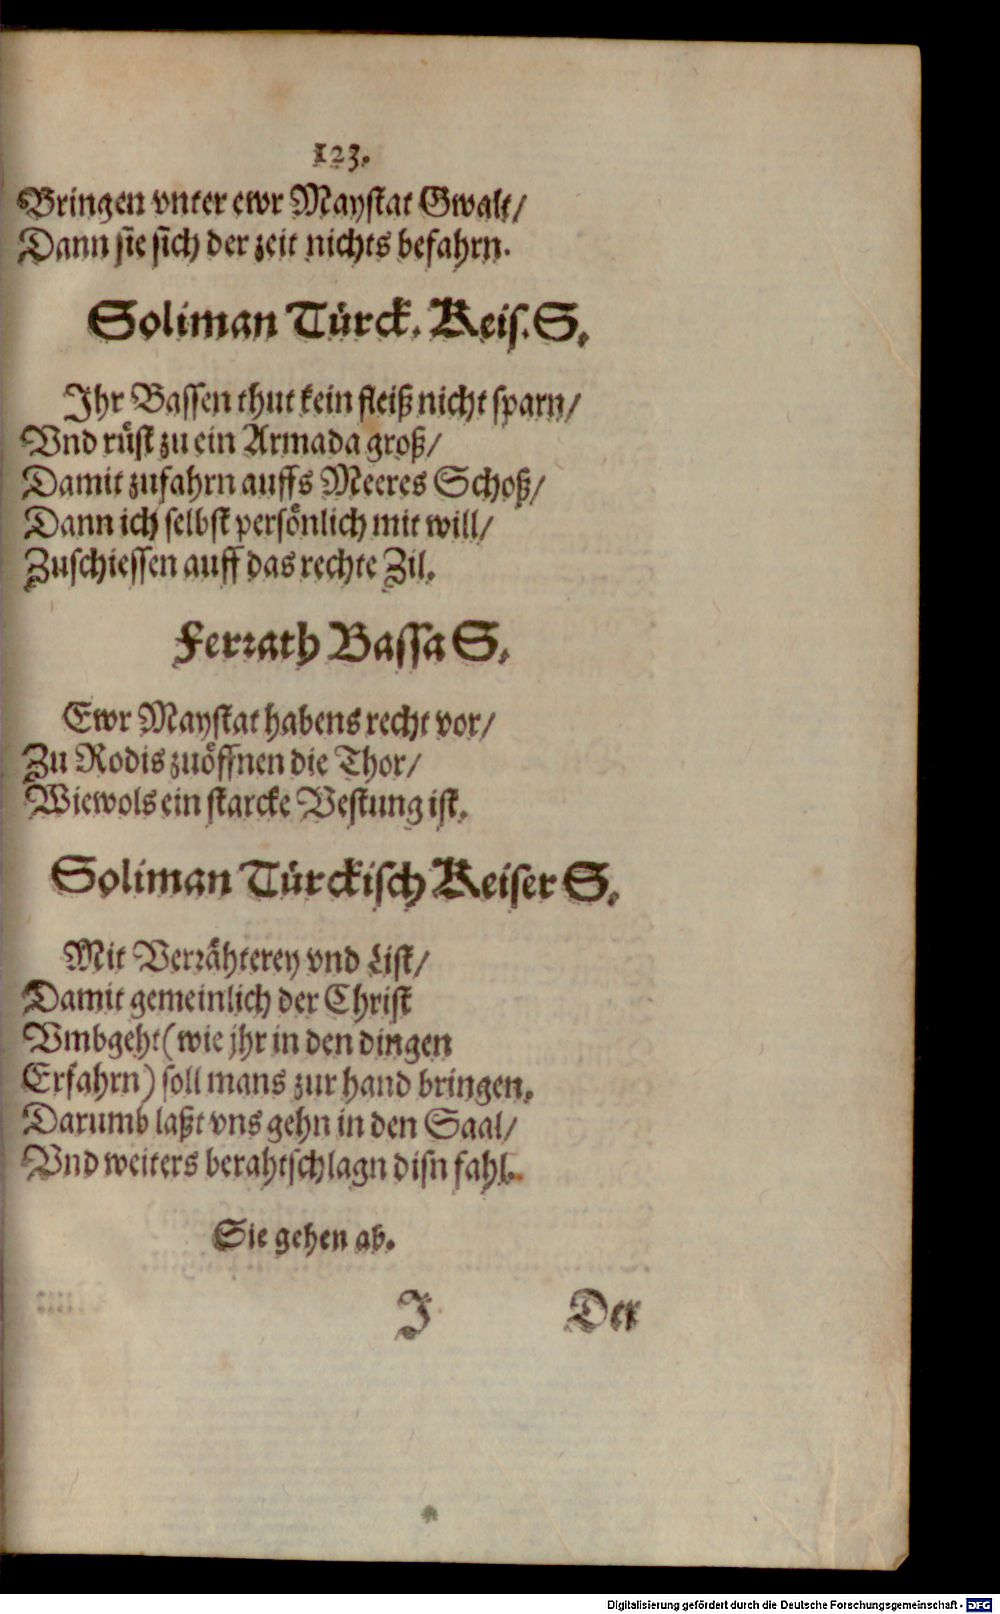 123.
Bringen vnter ewr Maystat Gwalt/
Dann sie sich der zeit nichts befahrn.
Soliman Türck. Keis. S.
Ihr Bassen thut kein fleiß nicht sparn/
Vnd rüst zu ein Armada groß/
Damit zufahrn auffs Meeres Schoß/
Dann ich selbst persönlich mit will/
Zuschiessen auff das rechte Zil.
Ferrath Bassa S.
Ewr Maystat habens recht vor/
Zu Rodis zuöffnen die Thor/
Wiewols ein starcke Vestung ist.
Soliman Türckisch Keiser S.
Mit Verrähterey vnd List/
Damit gemeinlich der Christ
Vmbgeht (wie jhr in den dingen
Erfahrn) soll mans zur hand bringen.
Darumb laßt vns gehn in den Saal/
Vnd weiters berahtschlagn disn fahl.
Sie gehen ab.
J Der
Digitalisierung gefördert durch die Deutsche Forschungsgemeinschaft - DFG